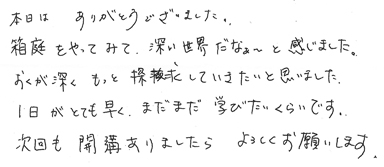 本日は ありがとうございました。
箱庭をやってみて、深い世界だなぁ〜と感じました。
おくが深く もっと 探求していきたいと思いました。
1日がとても早く、まだまだ 学びたいくらいです。
次回も 開講ありましたら よろしくお願いします。